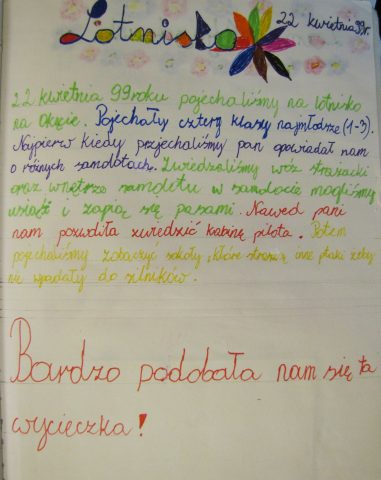 Lotnisko 22 kwietnia 99r.
22 kwietnia 99 roku pojechaliśmy na lotnisko
na Okęcie. Pojechały cztery klasy najmłodsze (1-3).
Najpierw kiedy przjechaliśmy pan opowiadał nam
o różnych samolotach. Zwiedzaliśmy wóz strażacki
oraz wnętrze samolotu w samolocie mogliśmy
usiąść i zapiąć się pasami. Nawed pani
nam pozwoliła zwiedzić kabinę pilota. Potem
pojechaliśmy zobaczyć sokoły, które straszą inne ptaki żeby
nie wpadały do silników.
Bardzo podobała nam się ta
wycieczka!